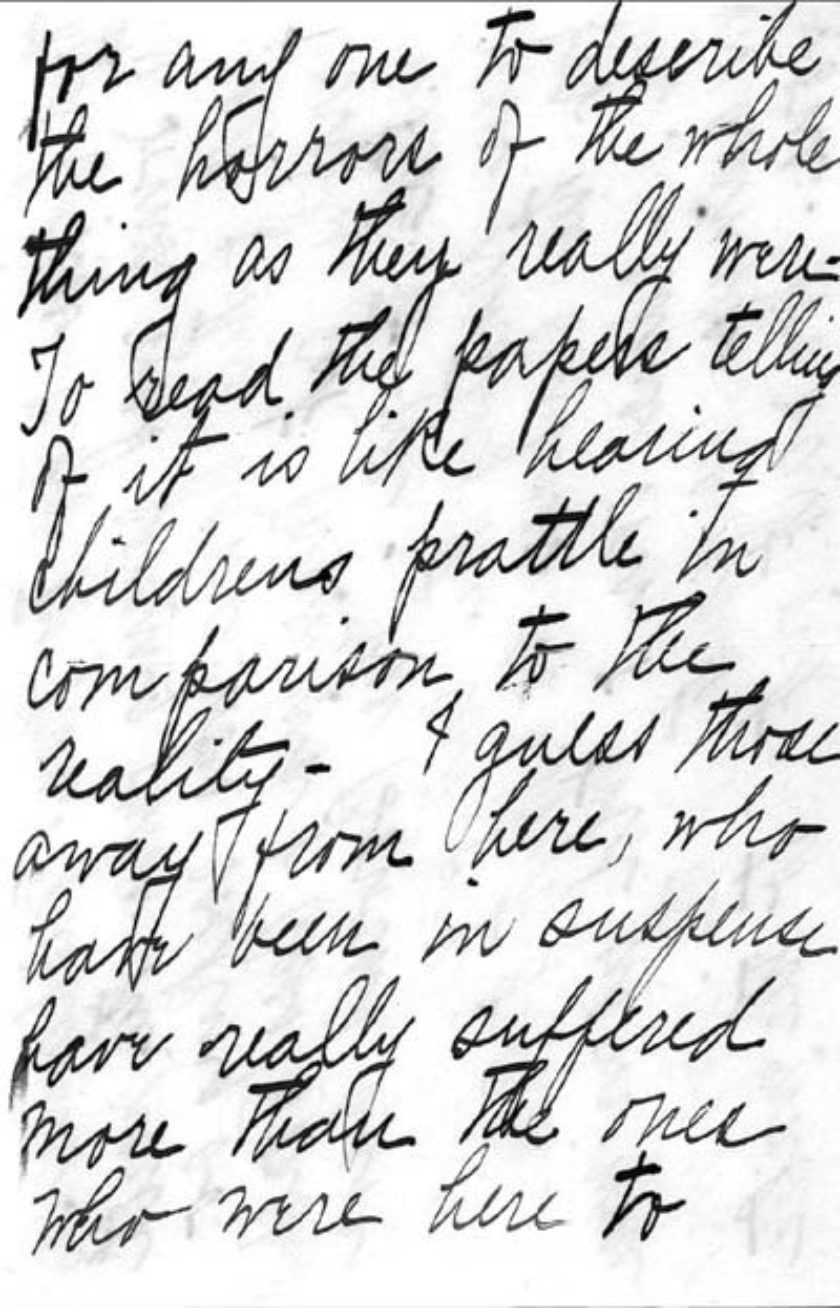 for any one to describe
the horrors of the whole
thing as they really were-
To read the papers telling
of it is like hearing
childrens prattle in
comparison to the
reality - & guess those
away from here, who
have been in suspense
have really suffered
more than the ones
who were here to